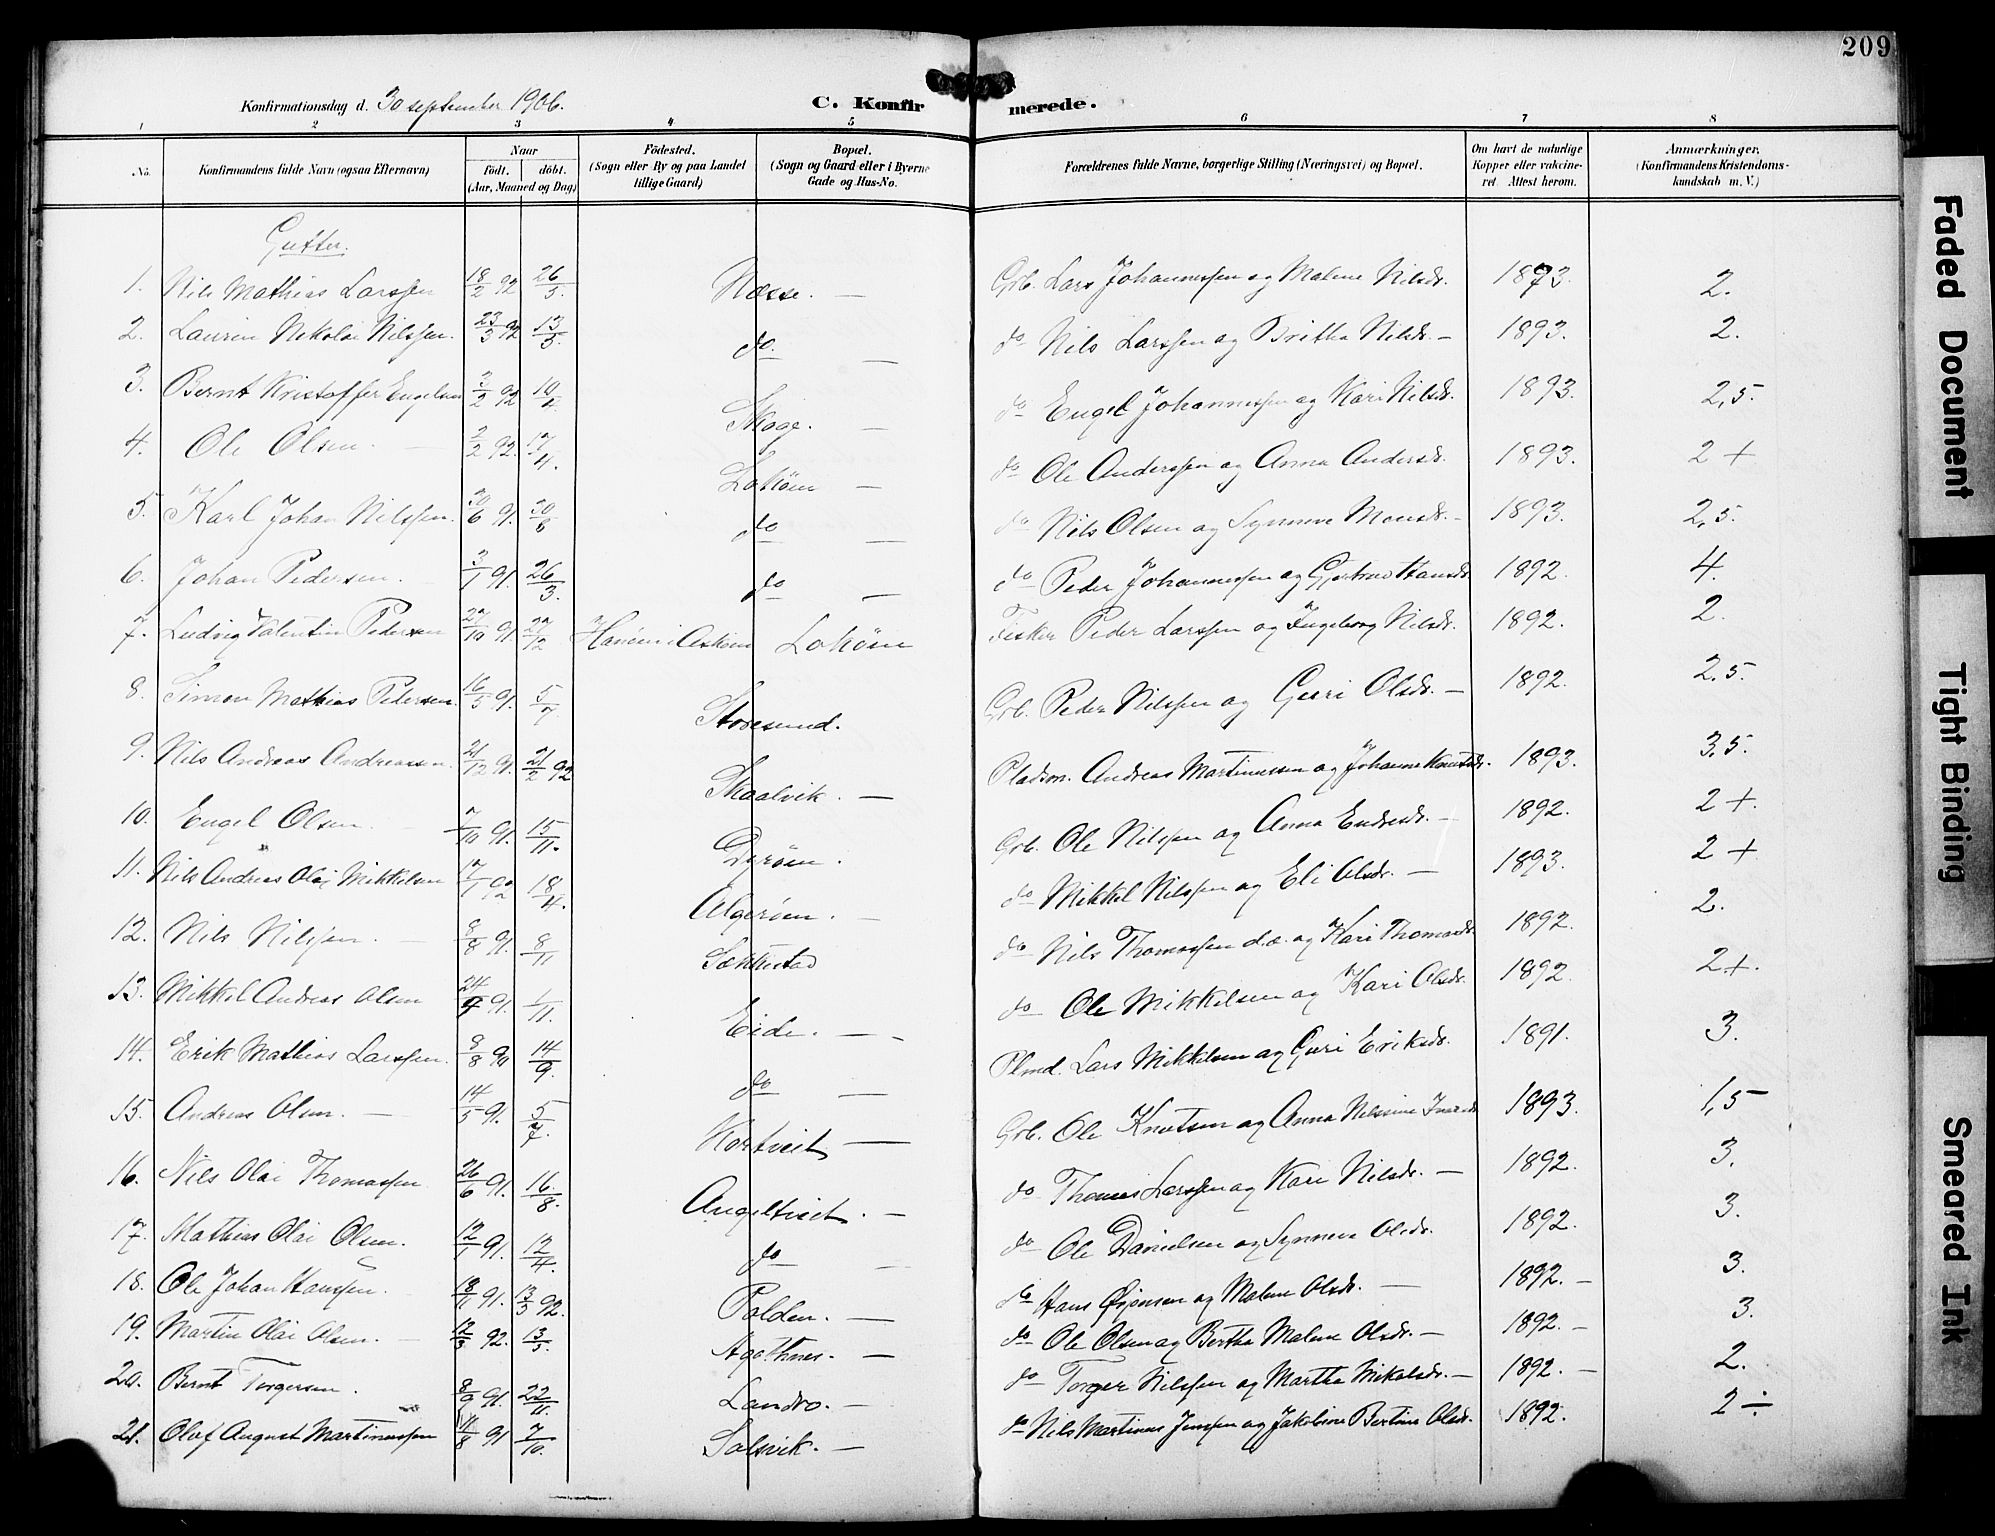 209
Konfirmationsdag d. 30 september 1906.
C. Konfirmerede.
1 2 3 4 5 6 7 8
No. Konfirmandens fulde Navn (ogsaa Efternavn) Naar født. døbt. (Aar, Maaned og Dag) Fødested. (Sogn eller By og paa Landet tillige Gaard) Bopæl. (Sogn og Gaard eller i Byerne Gade og Hus-No. Forældrenes fulde Navne, borgerlige Stilling (Næringsvei) og Bopæl. Om havt de naturlige Kopper eller vakcineret. Attest herom. Anmærkninger, (Konfirmandens Kristendomskundskab m. V.)
Gutter.
1. Nils Mathias Larssen 18/2 92 26/5. Næsse. — Grb. Lars Johannessen og Malene Nilsdr. 1893. 2.
2. Laurin Nikolai Nilssen. 23/3 92 13/5. do. — do Nils Larssen og Britha Nilsdr. — 1893. 2.
3. Bernt Kristoffer Engelsen 3/2 92 10/4 Skoge. — do Engel Johannessen og Kari Nilsdr. 1893. 2,5.
4. Ole Olsen. — 2/2 92. 17/4. Lokøen — do Ole Anderssen og Anna Andersdr. 1893. 2 +
5. Karl Johan Nilssen. 30/6 91. 30/8 do — do Nils Olsen og Synneve Monsdr. — 1893. 2,5.
6. Johan Pedersen. 3/1 91. 26/3. do — do Peder Johannessen og Gjertrud Hansdr. 1892. 4.
7. Ludvig Valentin Pedersen 27/10 91. 27/12 Hanøen i Askøen Lokøen Fisker Peder Larssen og Ingeborg Nilsdr. 1892. 2.
8. Simon Mathias Pedersen. 16/5 91. 5/7 Storesund. Grb. Peder Nilssen og Guri Olsdr. — 1892. 2,5.
9. Nils Andreas Andreassen. 21/12 91. 21/2 92 Skaalvik. — Pladsm. Andreas Martinussen og Johanne Knutsdr. 1893. 3,5.
10. Engel Olsen. 7/10 91. 15/11. Dyrøen. Grb. Ole Nilssen og Anna Endresdr. — 1892. 2 +.
11. Nils Andreas Olai Mikkelsen 17/1 92 18/4. Algerøen. — do Mikkel Nilssen og Eli Olsdr. — 1893. 2 +
12. Nils Nilssen. — 8/8 91. 8/11 Sækkestad do Nils Thomassen d.æ. og Kari Thomasdr. 1892. 2.
13. Mikkel Andreas Olsen 24/9 91. 1/11. Eide. — do Ole Mikkelsen og Kari Olsdr. 1892. 2+.
14. Erik Mathias Larssen. 8/8 90 14/9. do — Plmd. Lars Mikkelsen og Guri Eriksdr. 1891. 3.
15. Andreas Olsen. — 14/5 91. 5/7. Kortveit — Grb. Ole Knutsen og Anna Nilssine Ivarsdr. 1893. 1,5
16. Nils Olai Thomassen 26/6 91. 16/8. Angeltveit. — do Thomas Larssen og Kari Nilsdr. — 1892. 3.
17. Mathias Olai Olsen. 12/1 91. 12/4. do — do Ole Danielsen og Synneve Olsdr. 1892. 3.
18. Ole Johan Hanssen. 18/11 91. 13/3 92. Polden. — do Hans Øjensen og Malene Olsdr. — 1892. — 3.
19. Martin Olai Olsen. — 12/3 92. 13/5. Agothnes. — do Ole Olsen og Bertha Malene Olsdr. — 1892. — 3.
20. Bernt Torgersen. 8/9 91. 22/11. Landro. — do Torger Nilssen og Martha Mikalsdr. — 1892. — 2.
21. Olaf August Martinussen 11/8 91 7/10. Solsvik. — do Nils Martinus Jenssen og Jakobine Bertine Olsdr. 1892. 2 ÷
Faded Document
Tight Binding
Smeared Ink